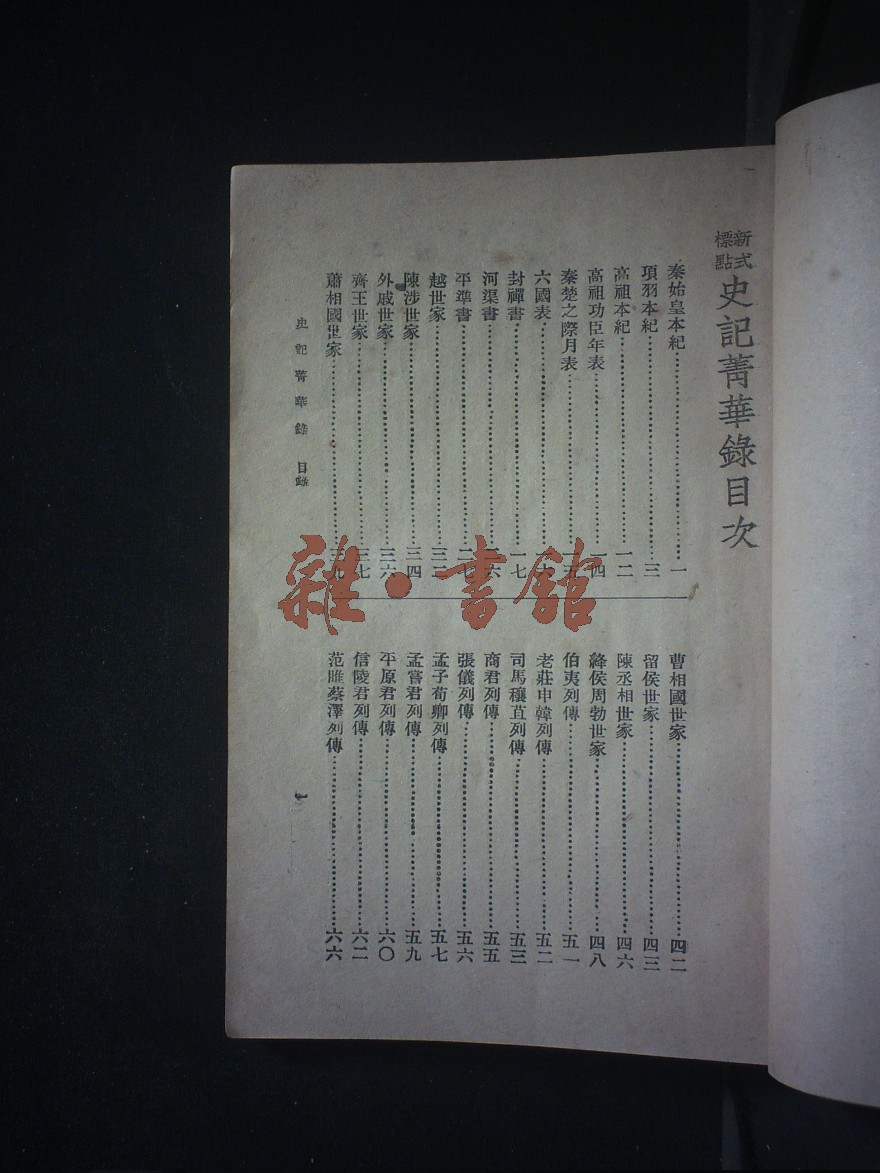 新式標點史記菁華錄目次
秦始皇本紀 一
項羽本紀 三
高祖本紀 一二
高祖功臣年表 一四
秦楚之際月表
六國表
封禪書 一七
河渠書
平準書
越世家 三二
陳涉世家 三四
外戚世家 三六
齊王世家 三七
蕭相國世家
曹相國世家 四二
留侯世家 四三
陳丞相世家 四六
絳侯周勃世家 四八
伯夷列傳 五一
老莊申韓列傳 五二
司馬穰苴列傳 五三
商君列傳 五五
張儀列傳 五六
孟子荀卿列傳 五七
孟嘗君列傳 五九
平原君列傳 六〇
信陵君列傳 六二
范睢蔡澤列傳 六六
史記菁華錄 目錄
一
雜·書館